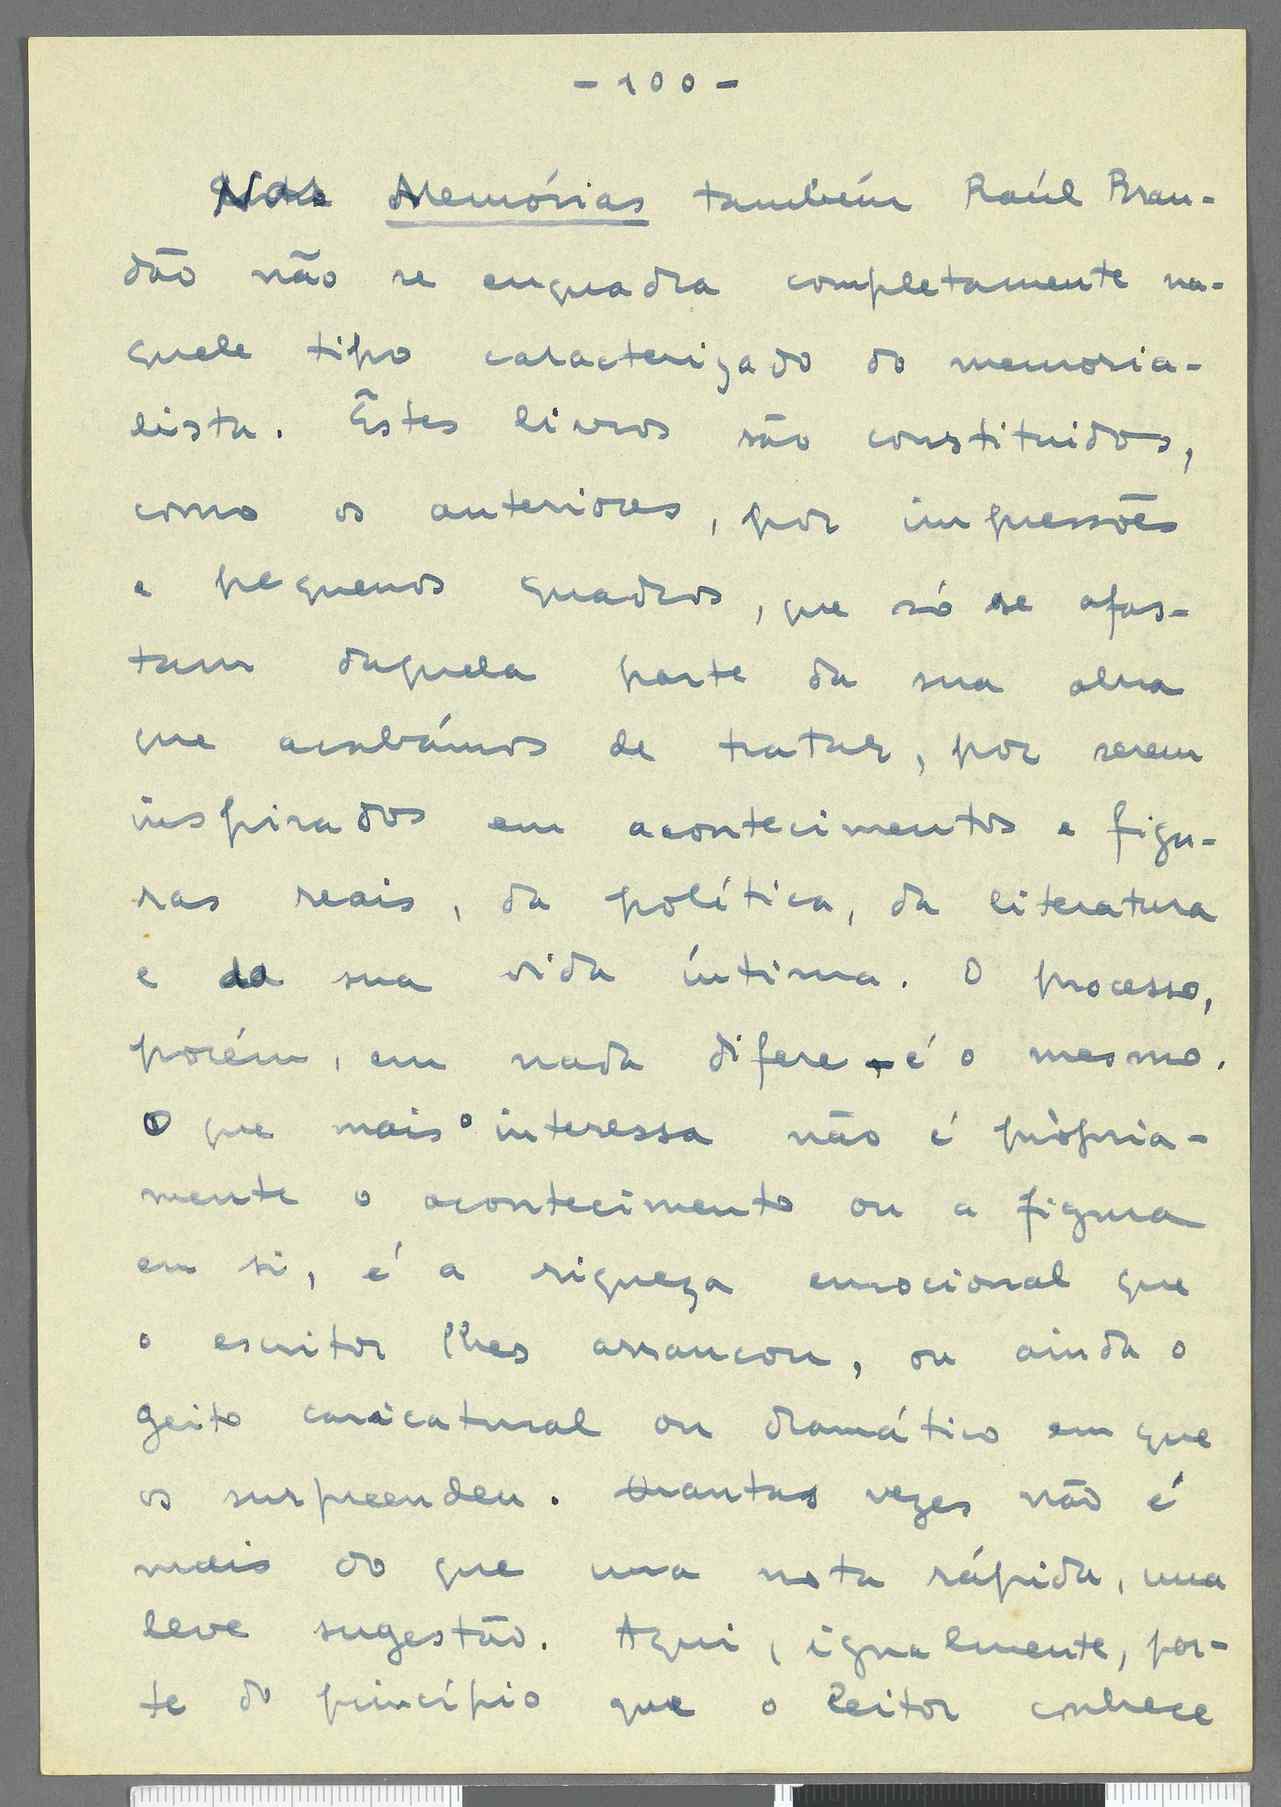 - 100 -
Nas Memórias também Raúl Bran-
dão não se enquadra completamente na-
quele tipo caracterizado do memoria-
lista. Êstes livros são constituidos,
como os anteriores, por impressões
e pequenos quadros, que só se afas-
tam daquela parte da sua obra
que acabámos de tratar, por serem
inspirados em acontecimentos e figu-
ras reais, da política, da literatura
e da sua vida íntima. O processo,
porém, em nada difere - é o mesmo.
O que mais o interessa não é pròpria-
mente o acontecimento ou a figura
em si, é a riqueza emocional que
o escritor lhes arrancou, ou ainda o
geito caricatural ou dramático em que
os surpreendeu. Quantas vezes não é
mais do que uma nota rápida, uma
leve sugestão. Aqui, igualmente, par-
te do princípio que o leitor conhece